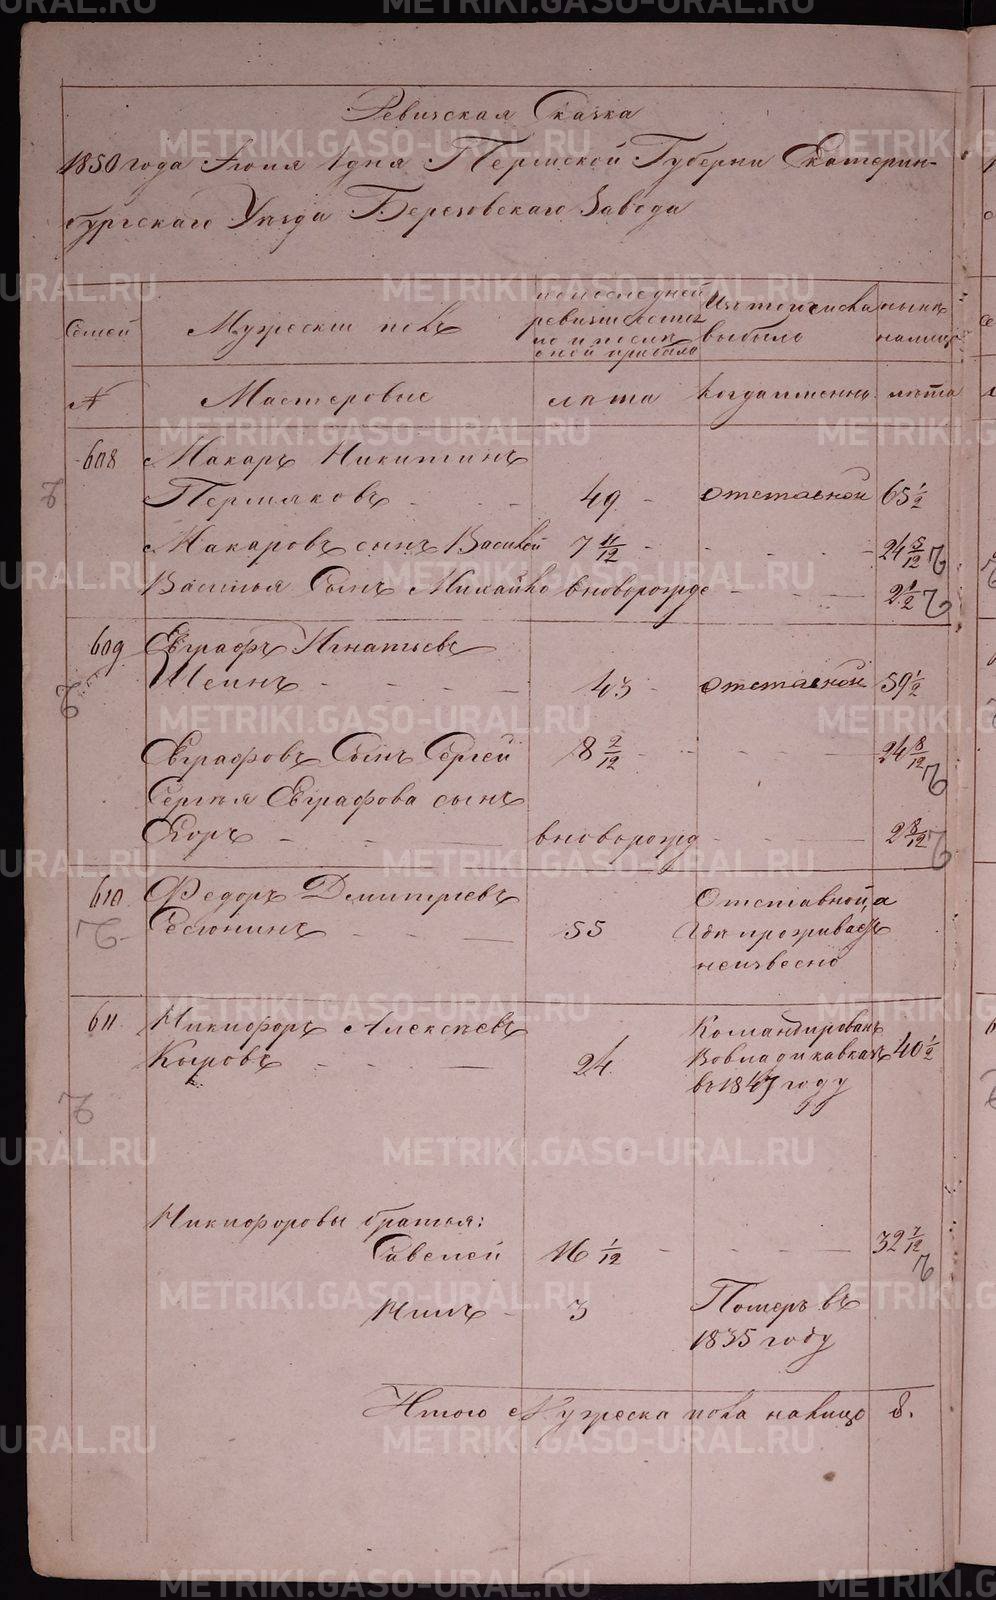 Ревизская Сказка
1850 года Июля 1 дня Пермской Губерни Екатерин-
бургскаго Уезда Березовскаго Завода
Семей
Мужеский полъ
по последней
ревизии состоя
ло и после
оной прибыло
Изтогочисла
выбыло
ныне
налицо
№
Мастеровые
лета
когдаименно
лета
608
Макаръ Никитинъ
Пермяковъ - - - 49 - отставной 65 1/2
Макаровъ сынъ Василей 7 11/12 - - - - 24 5/12
Василья Сынъ Михайло вноворожде - - - 2 1/2
609
Евграфъ Игнатьевъ
Шеинъ - - - - 43 - отставной 59 1/2
Евграфовъ Сынъ Сергей 8 2/12 - - - - 24 8/12
Сергея Евграфова сынъ
Егоръ - - - вноворожд - - - 2 8/12
610
Федоръ Дмитриевъ
Сесюнинъ - - - 55
Отставной, а
где проживаетъ
неизвесно
611
Никифоръ Алексеевъ
Кыровъ - - - 24
Командированъ
Вовладикавказъ 40 1/2
въ 1847 году
Никифоровы братья:
Савелей 16 1/12 - - - - 32 7/12
Нилъ - 3
Померъ въ
1835 году
Итого Мужеска пола налицо 8.
METRIKI.GASO-URAL.RU